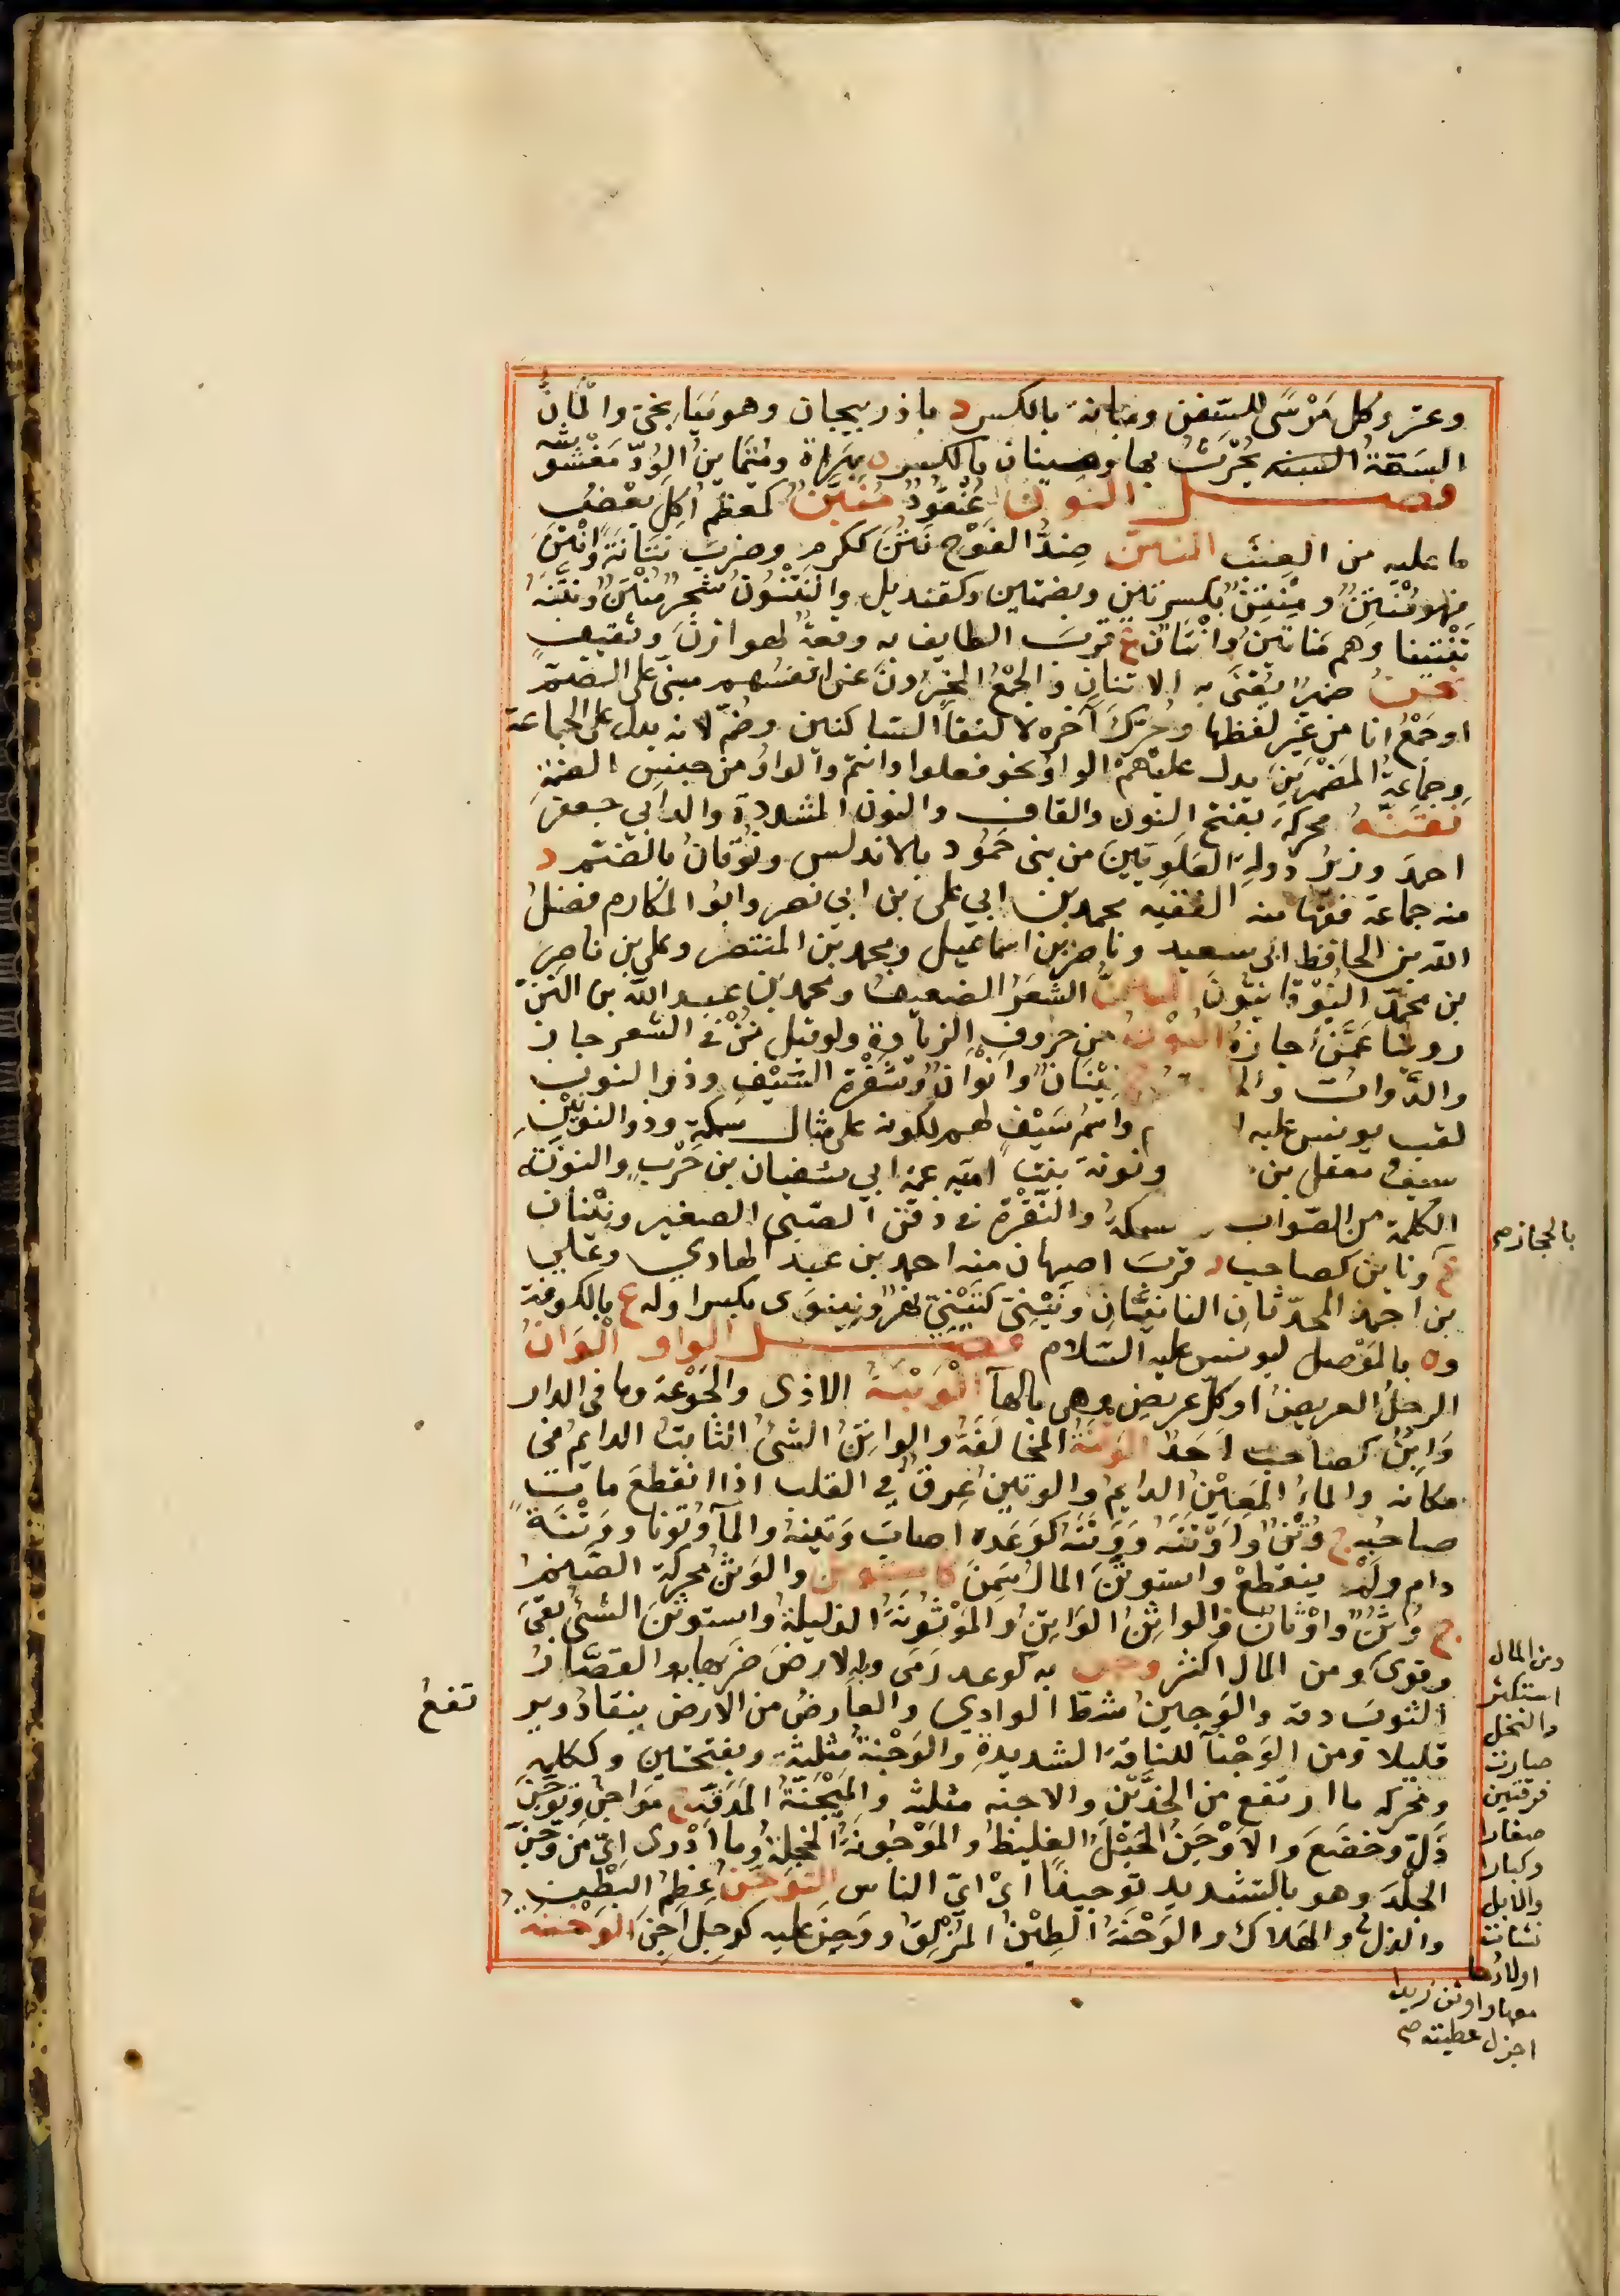 وعتز وكل مَرْسًى للسفن وميانه بالكسر د باذربيجان وهو مَيَانِجىّ والمَانُ
السَّنَّةُ يُحْرَثُ بها وميبنان بالكسر ه بهَرَاةَ ومُتَمَايِنُ الوُدّ مَغْشُوشُه
فصل النون عُنْقُودٌ مُنَبَّنٌ كمعظم اُكِلَ بعضُ
ما عليه من العنب النتن ضِدُّ الفَوْحِ نَتُنَ ككرم وضرب نَتَانَةً وانْتَنَ
فهو مُنْتِنٌ ومِنْتِنٌ بكسرتين وبضمتين وكقنديل والنَّيْتُونُ شجر مُنْتِنٌ ونَتَّنَهُ
تَنْتِينا وهم مَنَاتِينُ وانْتَانٌ ع قرب الطايف به وقعةٌ لهوازن وثقيف
نحن ضميرٌ يُعْنَى به الاثنان والجمْعُ المخبرون عن انفسهم مبنى على الضم
او جَمْعُ انا من غير لفظها وحُرّكَ آخره لالتقاء الساكنين وضُمّ لانه يدل على الجماعة
وجماعةُ المضمرين يدل عليهم الواوُ نحو فعلوا وانتم والواوُ من جنس الضمة
نَقَنَّه محركةً بفتح النون والقاف والنون المشددة والد ابي جعفر
احمد وزير دولة العلويين من بنى حَمُّود بالاندلس ونُوقَانُ بالضم د
منه جماعة فقهاء منه الفقيه محمد بن ابي على بن ابي نصر وابو المكارم فضلُ
الله بن الحافظ ابى سعيد وناصر بن اسماعيل ومحمد بن المنتصر وعلي بن ناصر
بن محمد النُّوقانيُّونَ النَّنُّ الشَّعَرُ الضعيفُ ومحمد بن عبد الله بن النَّنّ
روينا عَمَّنْ اجازه النون من حروف الزيادة ولو قيل نُنْ فى الشعر جاز
والدَّواة و نِيْنَانٌ وانْوانٌ وشَفْرَة السَّيْفِ وذو النون
لقب يونس عليه واسْمُ سَيْفٍ لهم لكونه على مثال سمكة وذو النونَيْنِ
سيف معقل بن ونونة بنت امية عمة ابي سفيان بن حَرْبٍ والنونة
الكلمة من الصواب سمكة والنُّقْرَة فى ذقن الصبى الصغير ونِيْنانُ
ع ونايِن كصاحب د قرب اصبهان منه احمد بن عبد الهادي وعلي
بن احمد المحدثان النانيان ونينوى بكسر اوله ع بالكوفة
وه بالموصل ليونس عليه السلام فصل الواو الْوَانُ
الرجلُ العريضُ او كلّ عريض وهى بالهاء الْوَبْنَةُ الاذى والجَوْعَة وما فى الدار
وَابِنٌ كصاحب اَحَدٌ الوتنة المخالَفَةُ والواتِنُ الشئُ الثابت الدايم فى
مكانه والماءُ المَعِيْنُ الدايمُ والوتينُ عِرق في القلب اذا انقطع مات
صاحبُه ج وُتُنٌ واَوْتِنَة ووَتَنَه كوَعَده اصاب وَتِينه والماء وُتونا ووَتْنَةً
دام ولم ينقطع واستوتَنَ المالُ سَمِنَ كاستوثن والوَثَنُ محركة الصنم
ج وُثُنٌ واَوْثانٌ والواثِنُ الوَاتِنُ والمَوْثُونَةُ الذليلةُ واستوثن الشئُ بقى
وقوى ومن المال اكثر وجن به كوعد رَمَى وبه الارضَ ضَرَبها به والقصَّارُ
الثوبَ دقه والوَجين شطّ الوادي والعارضُ من الارض ينقاد وير
تفعُ
قليلا ومن الوَجْنآء للناقة الشديدة والوَجْنَةُ مثلثة وبفتحتين وككلمه
ومحركه ما ارتفع من الخدّيْن والاجنه مثلثه والمِيْجَنَةُ المدقة ج مَوَاجِنُ وتَوَجَّنَ
ذلّ وخضَعَ والاَوْجَنُ الحَبْلُ الغليظُ والمَوْجُونَةُ الخجلةُ وما اَدْرى اىّ من وَجَّنَ
الجلْدَ وهو بالتشديد توجينًا اىْ اىّ الناس التوحُّن عِظَمُ البَطْن
والذلُّ والهلاك والوَحْنَة الطِيْنُ المُزْلِقُ ووَحِنَ عليه كوجل احِن الوَخْنَة
بالحجاز صح
ومن المال
استكثر
والنخل
صارت
فرقتين
صغارا
وكبارا
والابل
نشات
اولادُها
معها واوثن زيدا
اجزل عطيته صح